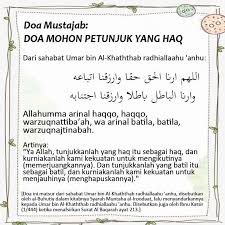 Doa Mustajab:
DOA MOHON PETUNJUK YANG HAQ
Dari sahabat Umar bin Al-Khaththab radhiallaahu 'anhu:
اللهم ارنا الحق حقا وارزقنا اتباعه
وارنا الباطل باطلا وارزقنا اجتنابه
Allahumma arinal haqqo, haqqo,
warzuqnattiba'ah, wa arinal batila, batila,
warzuqnajtinabah.
Artinya:
"Ya Allah, tunjukkanlah yang haq itu sebagai haq, dan
kurniakanlah kami kekuatan untuk mengikutinya
(memperjuangkannya). Dan tunjukkanlah yang batil itu
sebagai batil, dan kurniakanlah kami kekuatan untuk
menjauhinya (menghapuskannya)."
[Doa ini matsur dari sahabat Umar bin Al-Khaththab radhiallaahu 'anhu, disebutkan
oleh al-Buhutiy dalam kitabnya Syarah Muntaha al-Iroodaat, lalu menyandarkannya
kepada Umar bin Al-Khaththab radhiallaahu 'anhu. Disebutkan juga oleh Ibnu Katsir
(1/444) ketika menafsirkan Surat Al Baqarah ayat 213.]